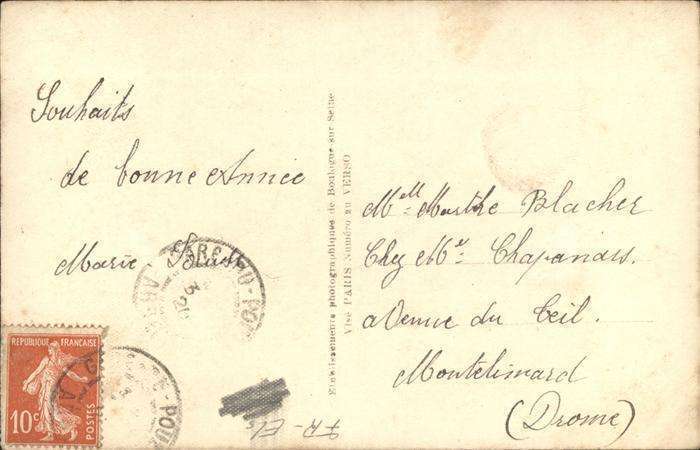 Souhaits
de bonne Année
Marie
Etablissements photographiques de Boulogne sur Seine
Visé PARIS Numéro au VERSO
Melle Marthe Blacher
Chez Mr Chapanis.
avenue du Teil.
Montelimard
(Drome)
REPUBLIQUE FRANÇAISE
10c
POSTES
FR-El